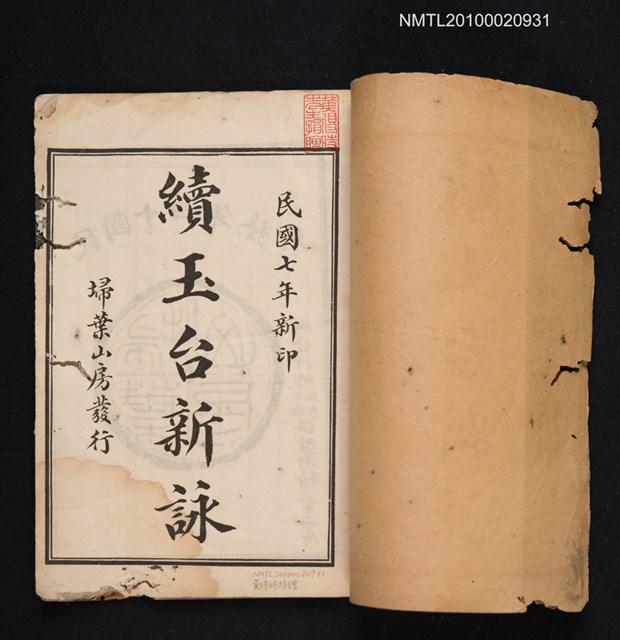 NMTL20100020931
民國七年新印
續玉台新詠
埽葉山房發行
NMTL20100020931